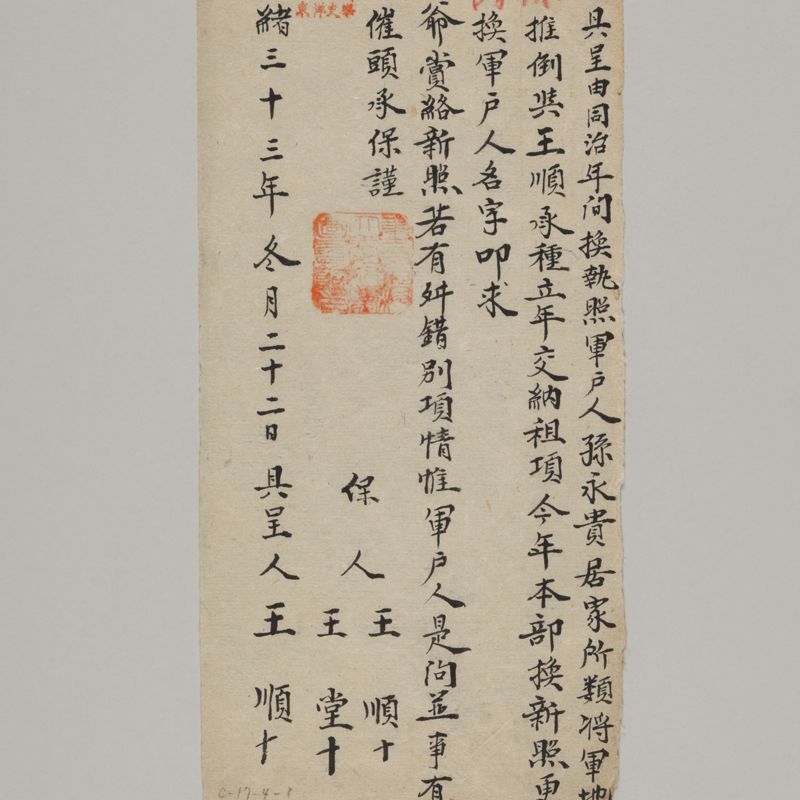 具呈由同治年间換執照軍户人孫永貴居家所類将軍地
推倒與王順承種立年交納租項今年本部換新照更
換軍户人名字叩求
爺賞給新照若有舛錯别項情惟軍户人是问並事有
催頭承保謹
保人 王順十
王堂十
緒三十三年冬月二十二日具呈人王順十
東洋文樂
C-17-4-1